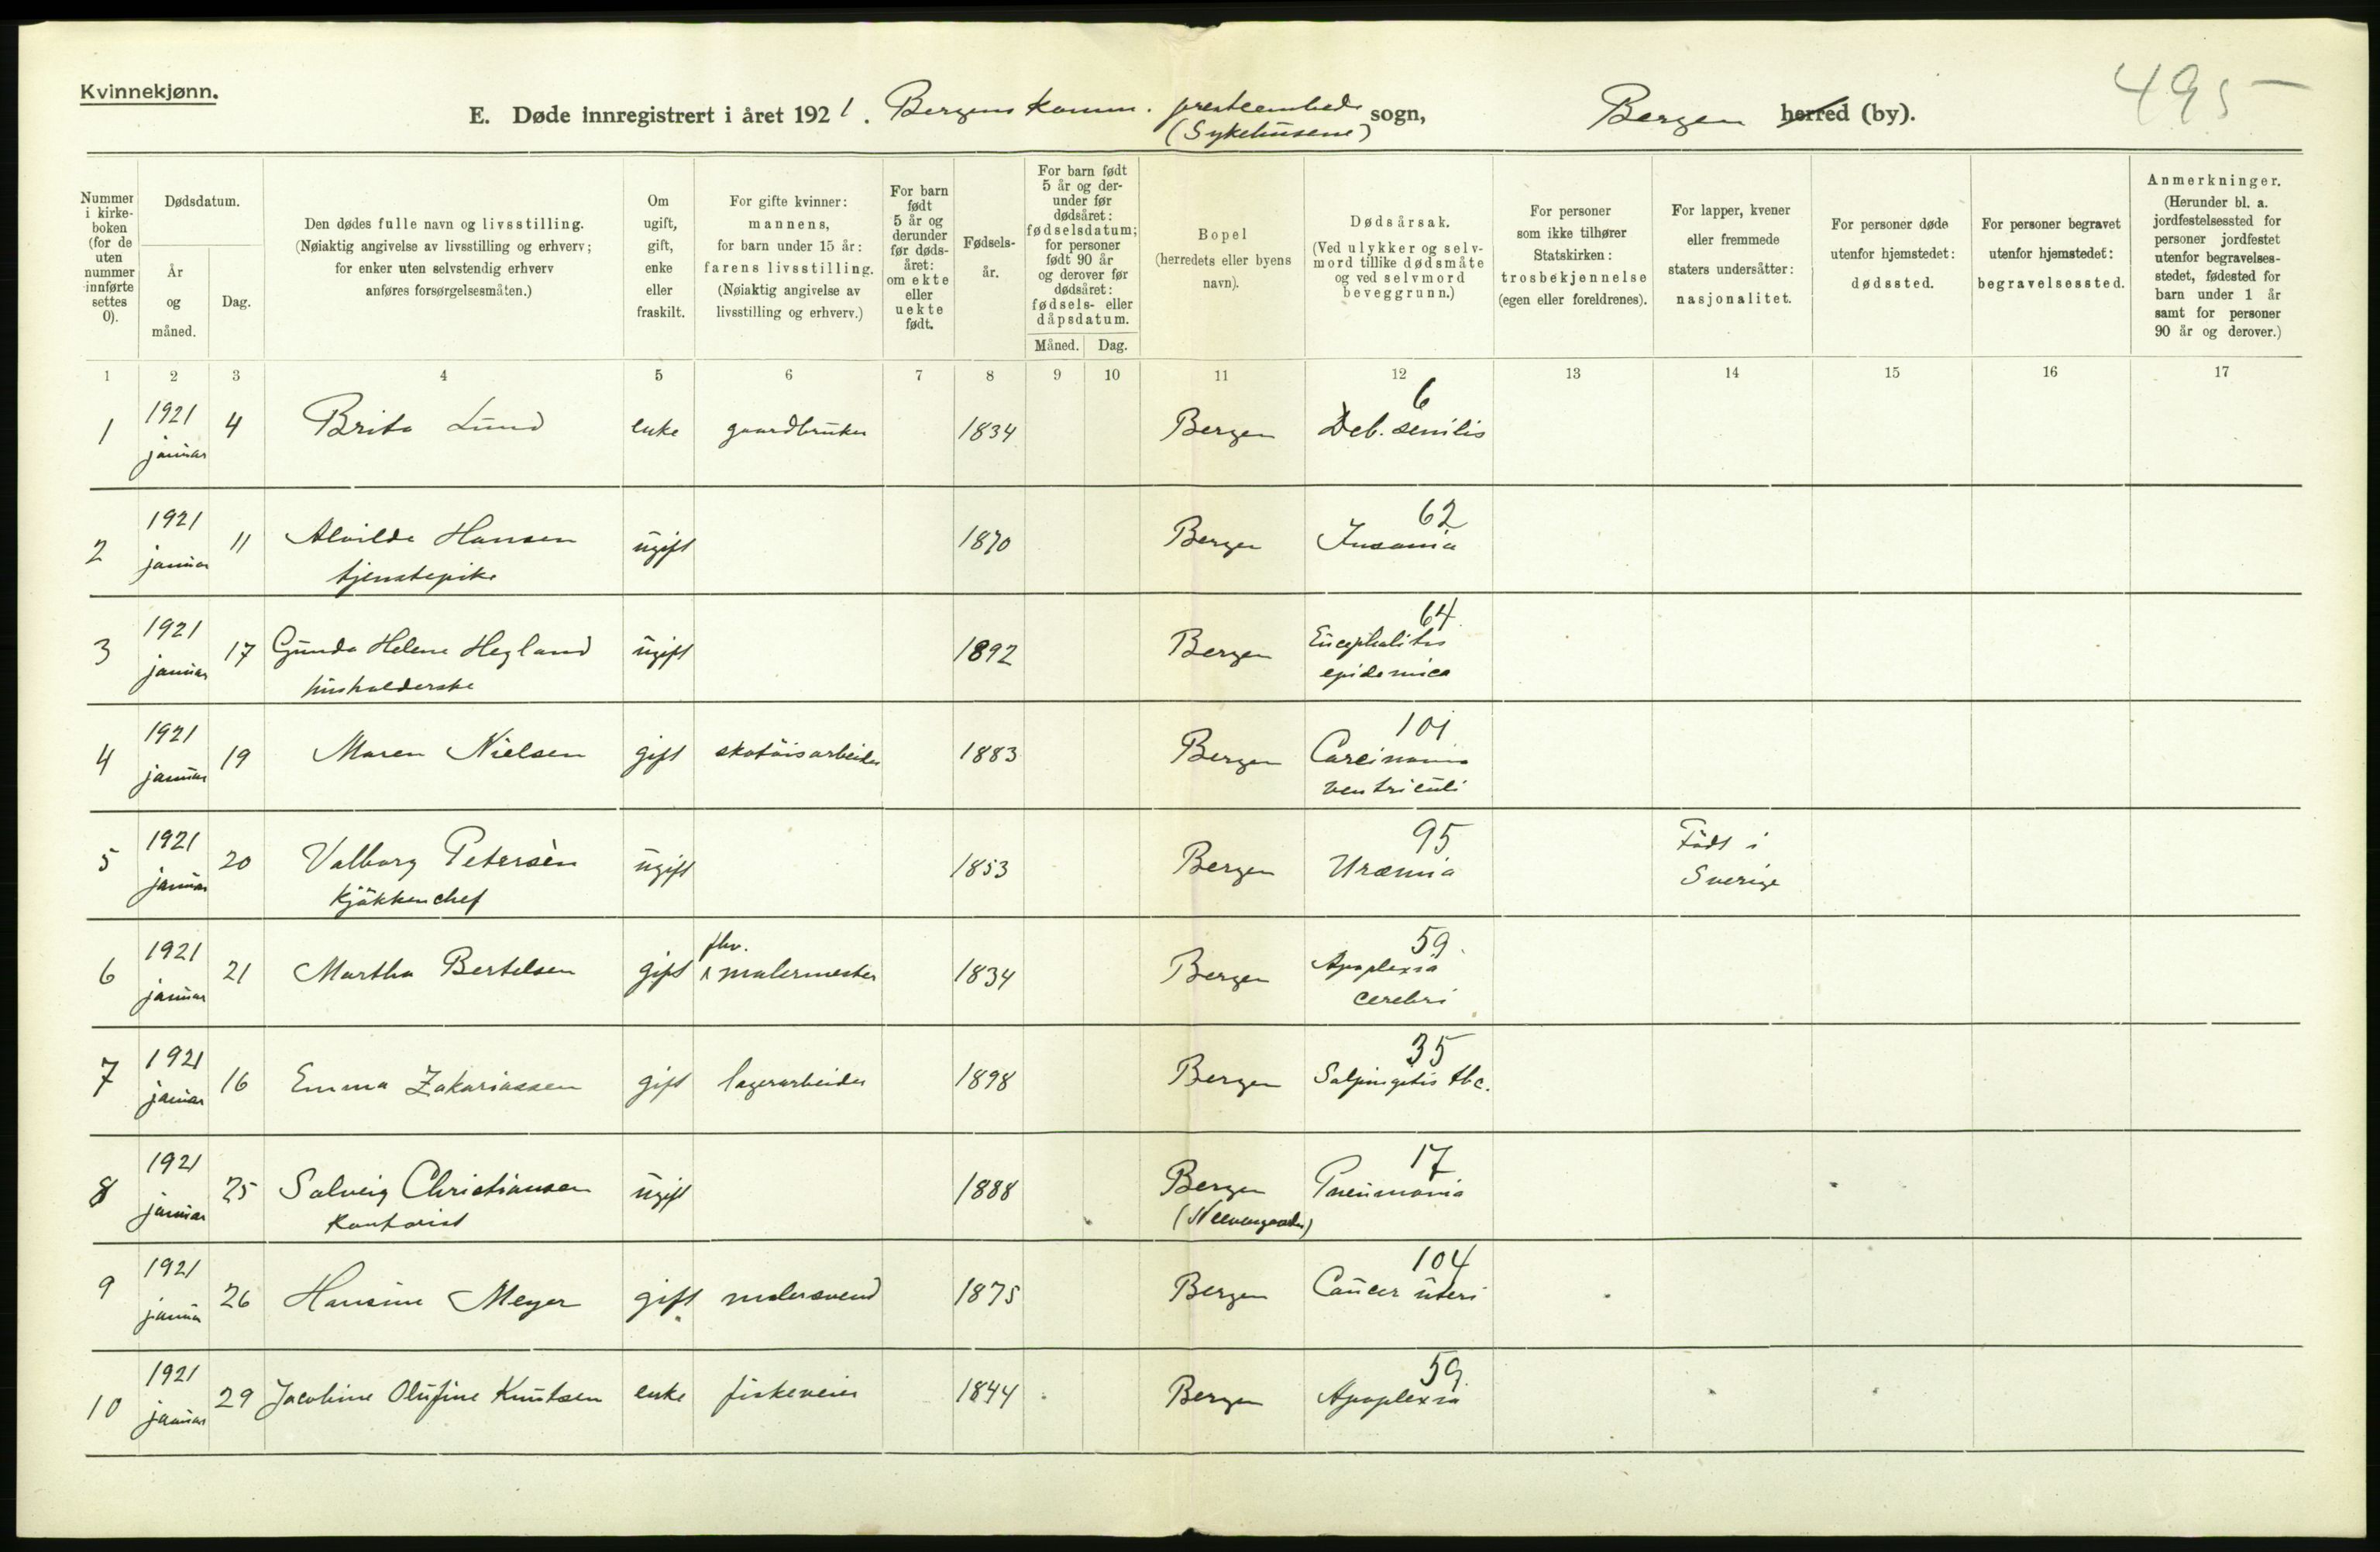 Kvinnekjønn.
495
E. Døde innregistrert i året 1921. Bergens komm. presteembede sogn, Bergen herred (by).
(Sykehusene)
Nummer i kirke-boken (for de uten nummer innførte settes 0).
Dødsdatum.
År og måned.
Dag.
Den dødes fulle navn og livsstilling.
(Nøiaktig angivelse av livsstilling og erhverv;
for enker uten selvstendig erhverv
anføres forsørgelsesmåten.)
Om ugift, gift, enke eller fraskilt.
For gifte kvinner: mannens,
for barn under 15 år: farens livsstilling.
(Nøiaktig angivelse av livsstilling og erhverv.)
For barn født 5 år og derunder før døds-året: om ekte eller uekte født.
Fødsels-år.
For barn født 5 år og der-under før dødsåret: fødselsdatum; for personer født 90 år og derover før dødsåret: fødsels- eller dåpsdatum.
Måned. Dag.
Bopel (herredets eller byens navn).
Dødsårsak.
(Ved ulykker og selv-mord tillike dødsmåte og ved selvmord beveggrunn.)
For personer som ikke tilhører Statskirken: trosbekjennelse (egen eller foreldrenes).
For lapper, kvener eller fremmede staters undersåtter: nasjonalitet.
For personer døde utenfor hjemstedet: dødssted.
For personer begravet utenfor hjemstedet: begravelsessted.
Anmerkninger.
(Herunder bl. a. jordfestelsessted for personer jordfestet utenfor begravelses-stedet, fødested for barn under 1 år samt for personer 90 år og derover.)
1 2 3 4 5 6 7 8 9 10 11 12 13 14 15 16 17
1 1921 januar 4 Brita Lund enke gaardbruker 1834 Bergen 6 Deb. senilis
2 1921 januar 11 Alvilde Hansen tjenstepike ugift 1870 Bergen 62 Insania
3 1921 januar 17 Gunda Helene Hegland husholderske ugift 1892 Bergen 64 Encephalitis epidemica
4 1921 januar 19 Maren Nielsen gift skotöisarbeider 1883 Bergen 101 Carcinoma ventriculi
5 1921 januar 20 Valborg Petersen Kjökkenchef ugift 1853 Bergen 95 Uræmia Födt i Sverige
6 1921 januar 21 Martha Bertelsen gift fhv. malermester 1834 Bergen 59 Apoplexia cerebri
7 1921 januar 16 Emma Zakariassen gift lagerarbeider 1898 Bergen 35 Salpingitis tbc.
8 1921 januar 25 Solveig Christiansen Kontorist ugift 1888 Bergen (Neevengaarden) 17 Pneumonia
9 1921 januar 26 Hansine Meyer gift malersvend 1875 Bergen 104 Cancer uteri
10 1921 januar 29 Jacobine Olufine Knutsen enke fiskeveier 1844 Bergen 59 Apoplexia